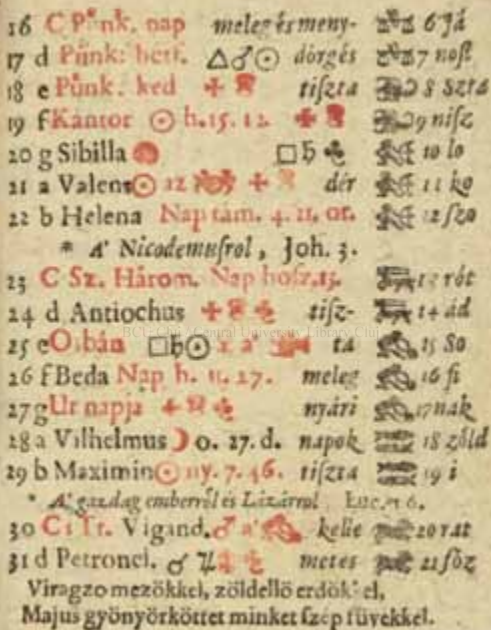 16 C Pünk. nap meleg és meny- 6 Já
17 d Pünk: hetf. △♂☉ dörgés 7 nost
18 e Pünk. ked tiſzta 8 Szta
19 f Kántor ☉ h.15. 12. 9 niſz
20 g Sibilla □♄ 10 lo
21 a Valens ☉ 12 dér 11 ko
22 b Helena Nap tám. 4. 11. or. 12 ſzo
* A' Nicodemuſrol, Joh. 3.
23 C Sz. Három. Nap hoſz.15. rót
24 d Antiochus tiſz- 14 ád
25 e Orbán □♄☉ ta 15 So
26 f Beda Nap h. 11. 27. meleg 16 ſi
27 g Ur napja nyári 17 nak
28 a Vilhelmus ☽ o. 27. d. napok 18 zöld
29 b Maximin ☉ ny. 7. 46. tiſzta 19 i
* A' gazdag emberröl és Lázárrol Luc. 16.
30 C 1 Tr. Vigand. ♂ a' kelle 20 rat
31 d Petronel. ♂ ♃ metes 21 ſöz
Viragzo mezökkel, zöldellö erdök'el,
Majus gyönyörköttet minket ſzép füvekkel.